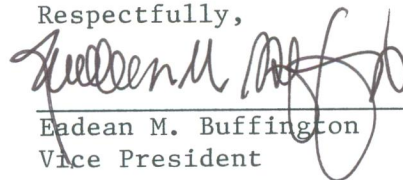 Respectfully,
Eadean M. Buffington
Vice President